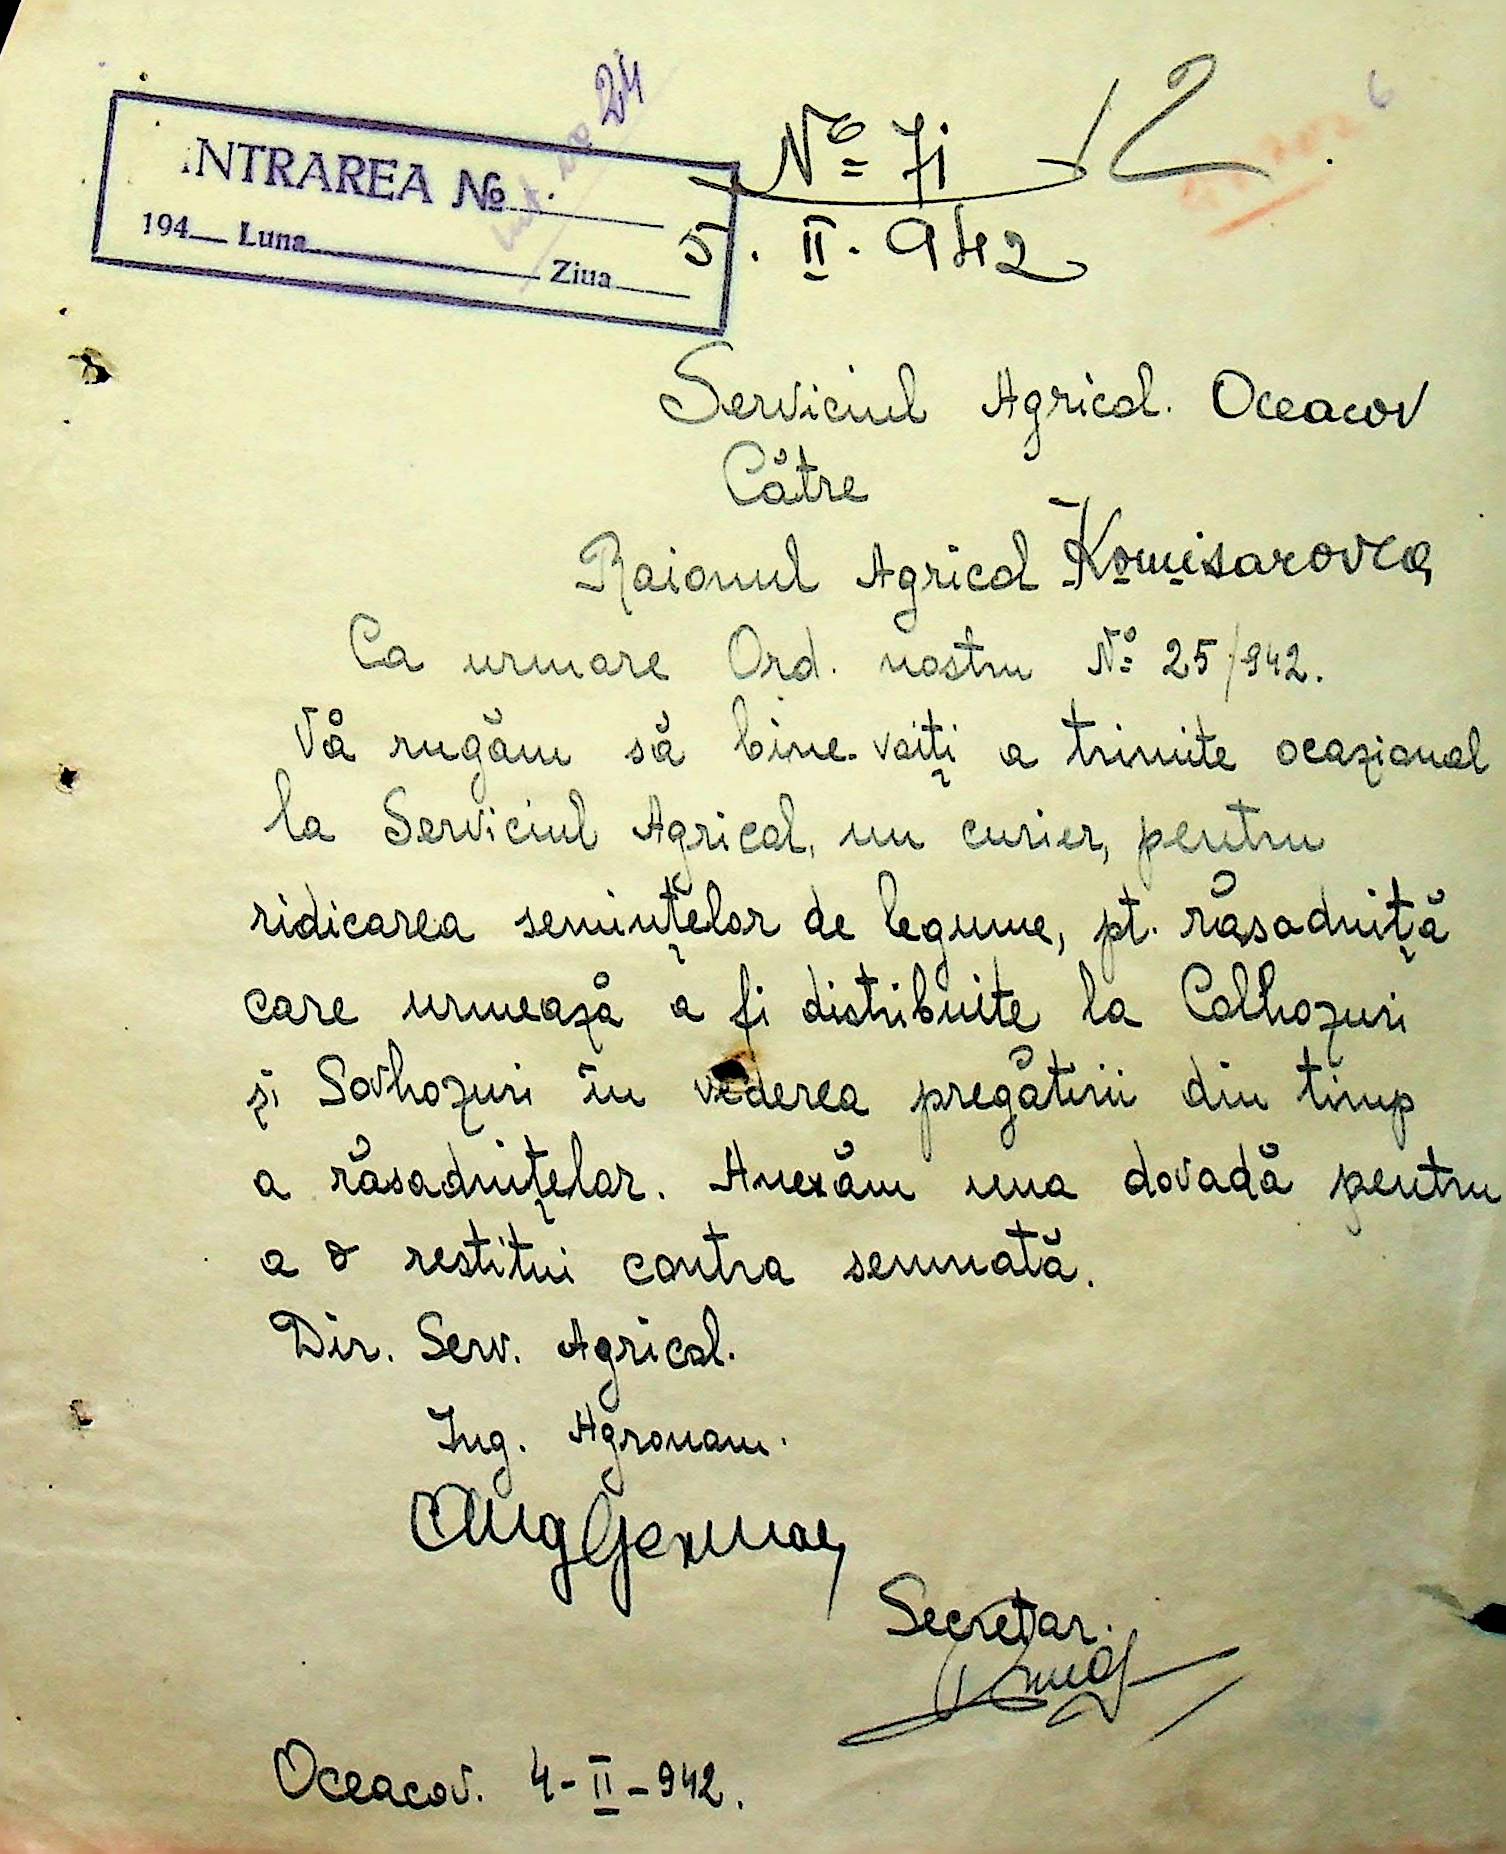 24
No 71
2
6
INTRAREA No
194__ Luna__ Ziua__
5. II. 942
Serviciul Agricol. Oceacov
Către
Raionul Agricol Komisarovca
Ca urmare Ord. nostru No 25/942.
Vă rugăm să bine-voiți a trimite ocazional
la Serviciul Agricol, un curier, pentru
ridicarea semințelor de legume, pt. răsadniță
care urmează a fi distribuite la Colhozuri
și Sovhozuri în vederea pregătirii din timp
a răsadnițelor. Anexăm una dovadă pentru
a o restitui contra semnată.
Dir. Serv. Agricol.
Ing. Agronom.
Secretar.
Oceacov. 4-II-942.